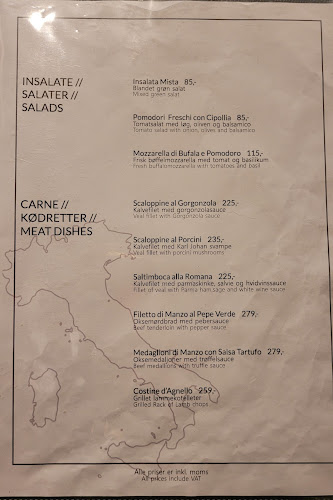 INSALATE //
SALATER //
SALADS
Insalata Mista 85,-
Blandet grøn salat
Mixed green salat
Pomodori Freschi con Cipollia 85,-
Tomatsalat med løg, oliven og balsamico
Tomato salad with onion, olives and balsamico
Mozzarella di Bufala e Pomodoro 115,-
Frisk bøffelmozzarella med tomat og basilikum
Fresh buffalomozzarella with tomatoes and basil
CARNE //
KØDRETTER //
MEAT DISHES
Scaloppine al Gorgonzola 225,-
Kalvefilet med gorgonzolasauce
Veal fillet with Gorgonzola sauce
Scaloppine al Porcini 235,-
Kalvefilet med Karl Johan svampe
Veal fillet with porcini mushrooms
Saltimboca alla Romana 225,-
Kalvefilet med parmaskinke, salvie og hvidvinssauce
Fillet of veal with Parma ham sage and white wine sauce
Filetto di Manzo al Pepe Verde 279,-
Oksemørbrad med pebersauce
Beef tenderloin with pepper sauce
Medaglioni di Manzo con Salsa Tartufo 279,-
Oksemedaljoner med trøffelsauce
Beef medallions with truffle sauce
Costine d'Agnello 259,-
Grillet lammekoteletter
Grilled Rack of Lamb chops
Alle priser er inkl. moms
All prices include VAT